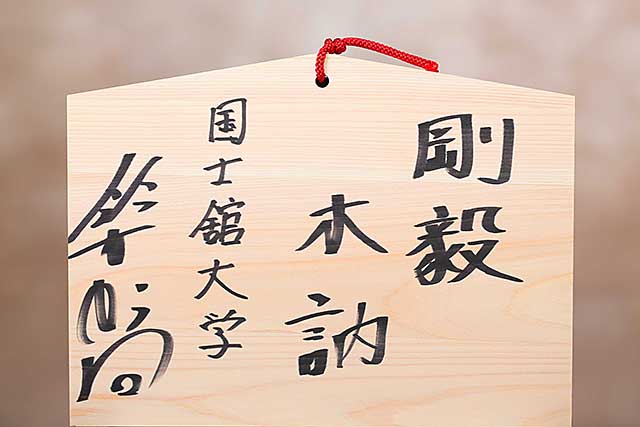 剛毅
木訥
国士舘大学